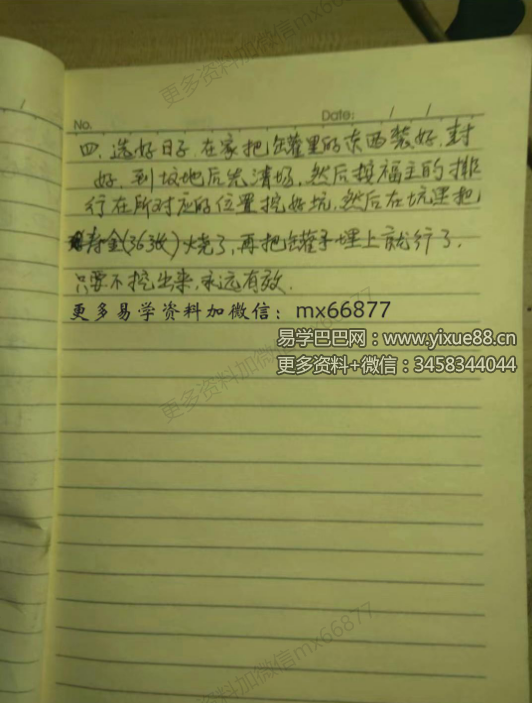 更多资料加微信mx66877
No.
Date:
四、选好日子,在家把缶罐里的东西装好,封
好,到坟地后先清场,然后按福主的排
行在所对应的位置挖好坑,然后在坑里把
寿金(363张)烧了,再把缶罐子埋上就行了.
只要不挖出来,永远有效.
更多易学资料加微信:mx66877
易学巴巴网:www.yixue88.cn
更多资料+微信:3458344044
更多资料加微信mx66877
更多资料加微信mx66877